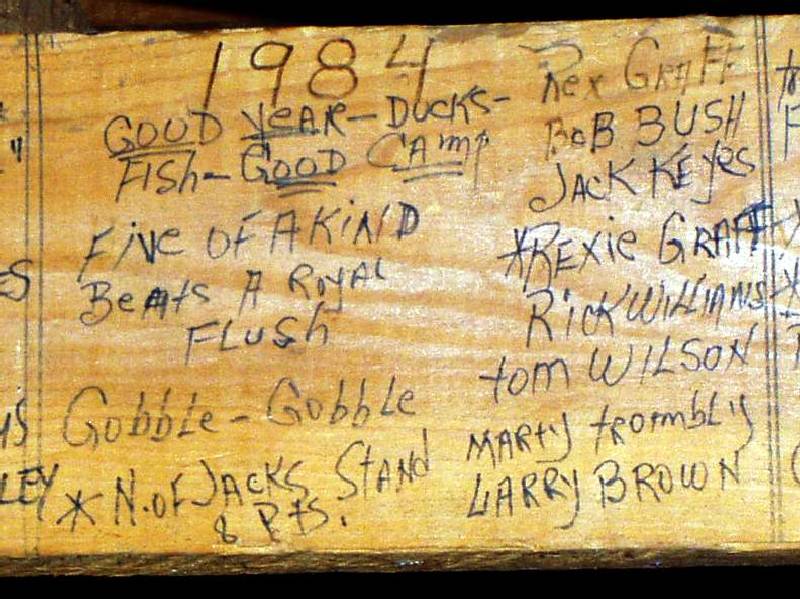 1984
GOOD YEAR - DUCKS -
FISH - GOOD CAMP
FIVE OF A KIND
BEATS A ROYAL
FLUSH
Gobble - Gobble
* N. OF JACKS STAND
8 PTS.
Rex GRAFF
BOB BUSH
JACK KEYES
*REXIE GRAFF
RICK WILLIAMS
tom WILSON
MARTY trombly
LARRY BROWN
ES
LEY